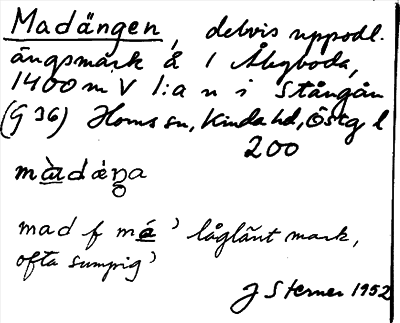 Madängen, delvis uppodl.
ängsmark å 1 Åbyboda,
1400 m V l:a n i Stångån
(G 36) Horns sn, Kinda hd, Östg l
200
mad f 'låglänt mark,
ofta sumpig'
J Sterner 1952